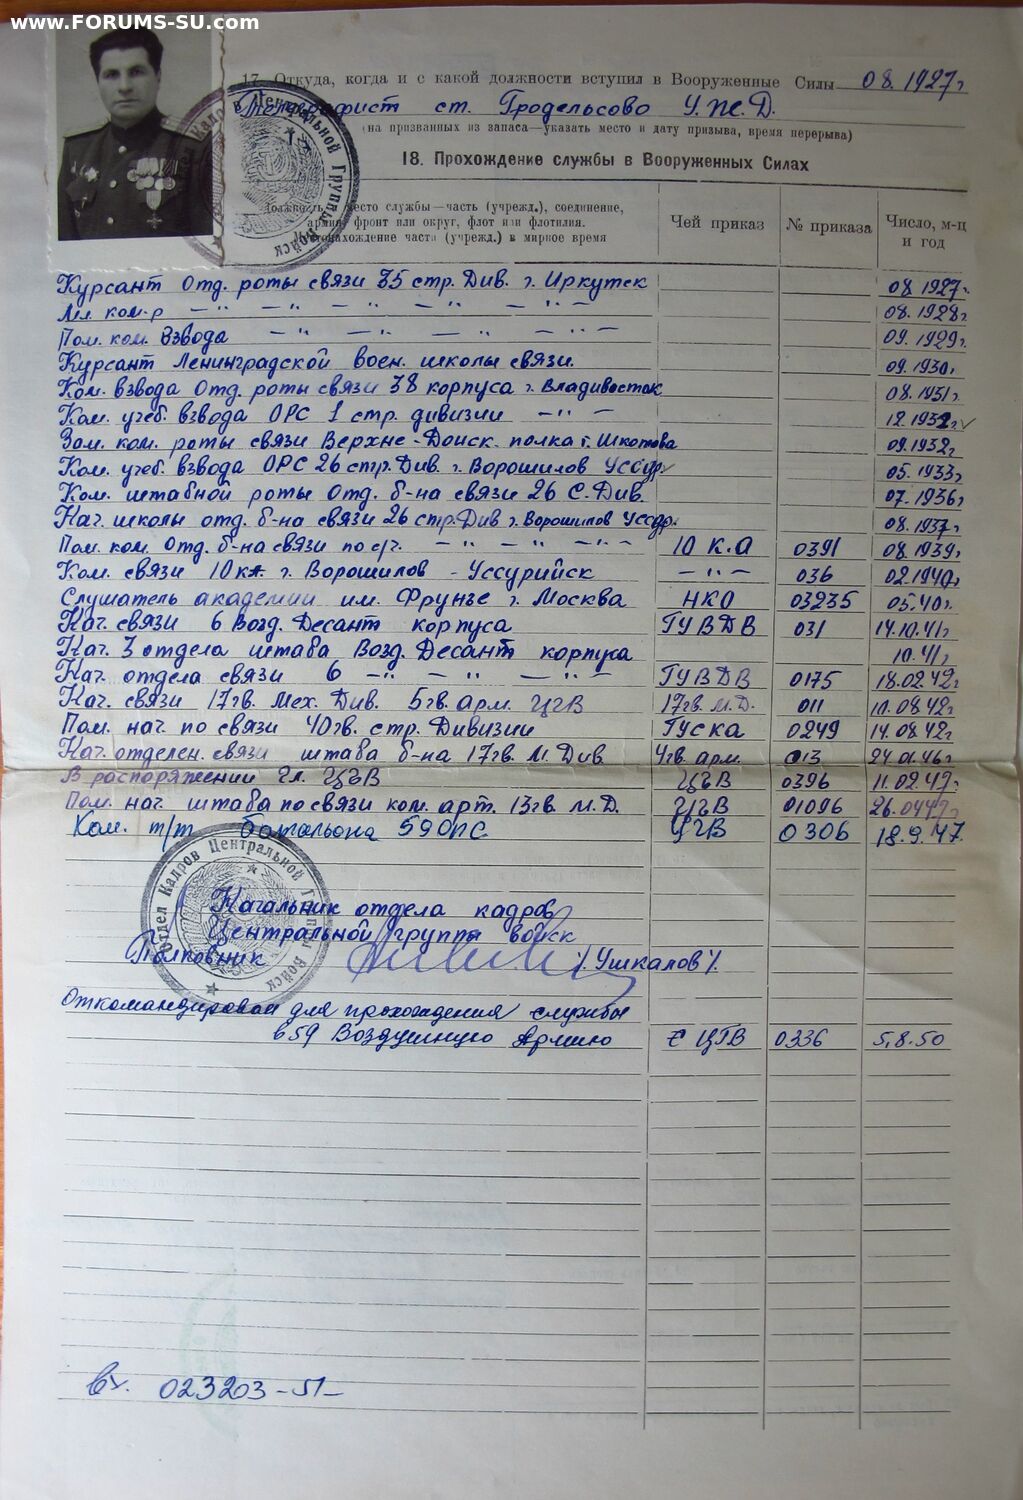 www.FORUMS-SU.com
17. Откуда, когда и с какой должности вступил в Вооруженные Силы 08.1927г
Телеграфист ст. Гродельсово У.Ж.Д.
(на призванных из запаса—указать место и дату призыва, время перерыва)
18. Прохождение службы в Вооруженных Силах
Должность, место службы—часть (учрежд.), соединение, армия, фронт или округ, флот или флотилия. Местонахождение части (учрежд.) в мирное время | Чей приказ | № приказа | Число, м-ц и год
Курсант Отд. роты связи 35 стр. Див. г. Иркутск 08.1927г.
Мл. ком-р —"— —"— —"— —"— 08.1928г
Пом. ком. Взвода —"— —"— —"— —"— 09.1929г.
Курсант Ленинградской воен. школы связи. 09.1930г
Ком. взвода Отд. роты связи 38 корпуса г. Владивосток 08.1931г
Ком. учеб. взвода ОРС 1 стр. дивизии —"— 12.1932г.
Зам. ком. роты связи Верхне-Донск. полка г. Шкотова 09.1932г
Ком. учеб. взвода ОРС 26 стр. Див. г. Ворошилов Уссур 05.1933г
Ком. штабной роты Отд. б-на связи 26 С.Див. 07.1936г
Нач. школы отд. б-на связи 26 стр. Див г. Ворошилов 08.1937г
Пом. ком. Отд. б-на связи по с/ч. —"— —"— —"— 10 К.А 0391 08.1939г
Ком. связи 10 ка. г. Ворошилов - Уссурийск —"— 036 02.1940г
Слушатель академии им. Фрунзе г. Москва НКО 03235 05.40г.
Нач. связи 6 Возд. Десант корпуса ГУВДВ 031 14.10.41г
Нач. 3 отдела штаба Возд. Десант корпуса 10.41г
Нач. отдела связи 6 —"— —"— —"— ГУВДВ 0175 18.02.42г
Нач. связи 17гв. Мех. Див. 5гв. арм. ЦГВ 17гв. М.Д. 011 10.08.42г
Пом. нач. по связи 40гв. стр. Дивизии ГУска 0249 14.08.42г
Нач. отделен. связи штаба б-на 17гв. М. Див. 4гв. арм. 013 24.01.46г
В распоряжении Гл. ЦГВ ЦГВ 0396 11.02.47г
Пом. нач. штаба по связи ком. арт. 13гв. М.Д. ЦГВ 01096 26.0447г
Ком. т/т батальона 59 ОПС. ЦГВ 0306 18.9.47.
Отдел Кадров Центральной Группы Войск
Начальник отдела кадров
Центральной группы войск
Полковник /Ушкалов/.
Откомандирован для прохождения службы
в 59 Воздушную Армию ЦГВ 0336 5.8.50
Вх. 023203-51-